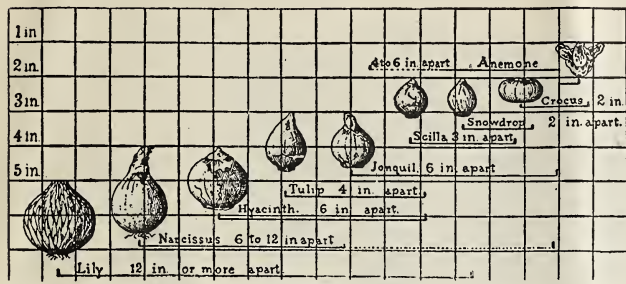 1 in
2 in.
3 in.
4 in.
5 in.
4 to 6 in. apart Anemone
Crocus 2 in.
Snowdrop 2 in. apart.
Scilla 3 in. apart
Jonquil. 6 in. apart
Tulip 4 in. apart.
Hyacinth. 6 in. apart.
Narcissus 6 to 12 in apart
Lily 12 in. or more apart